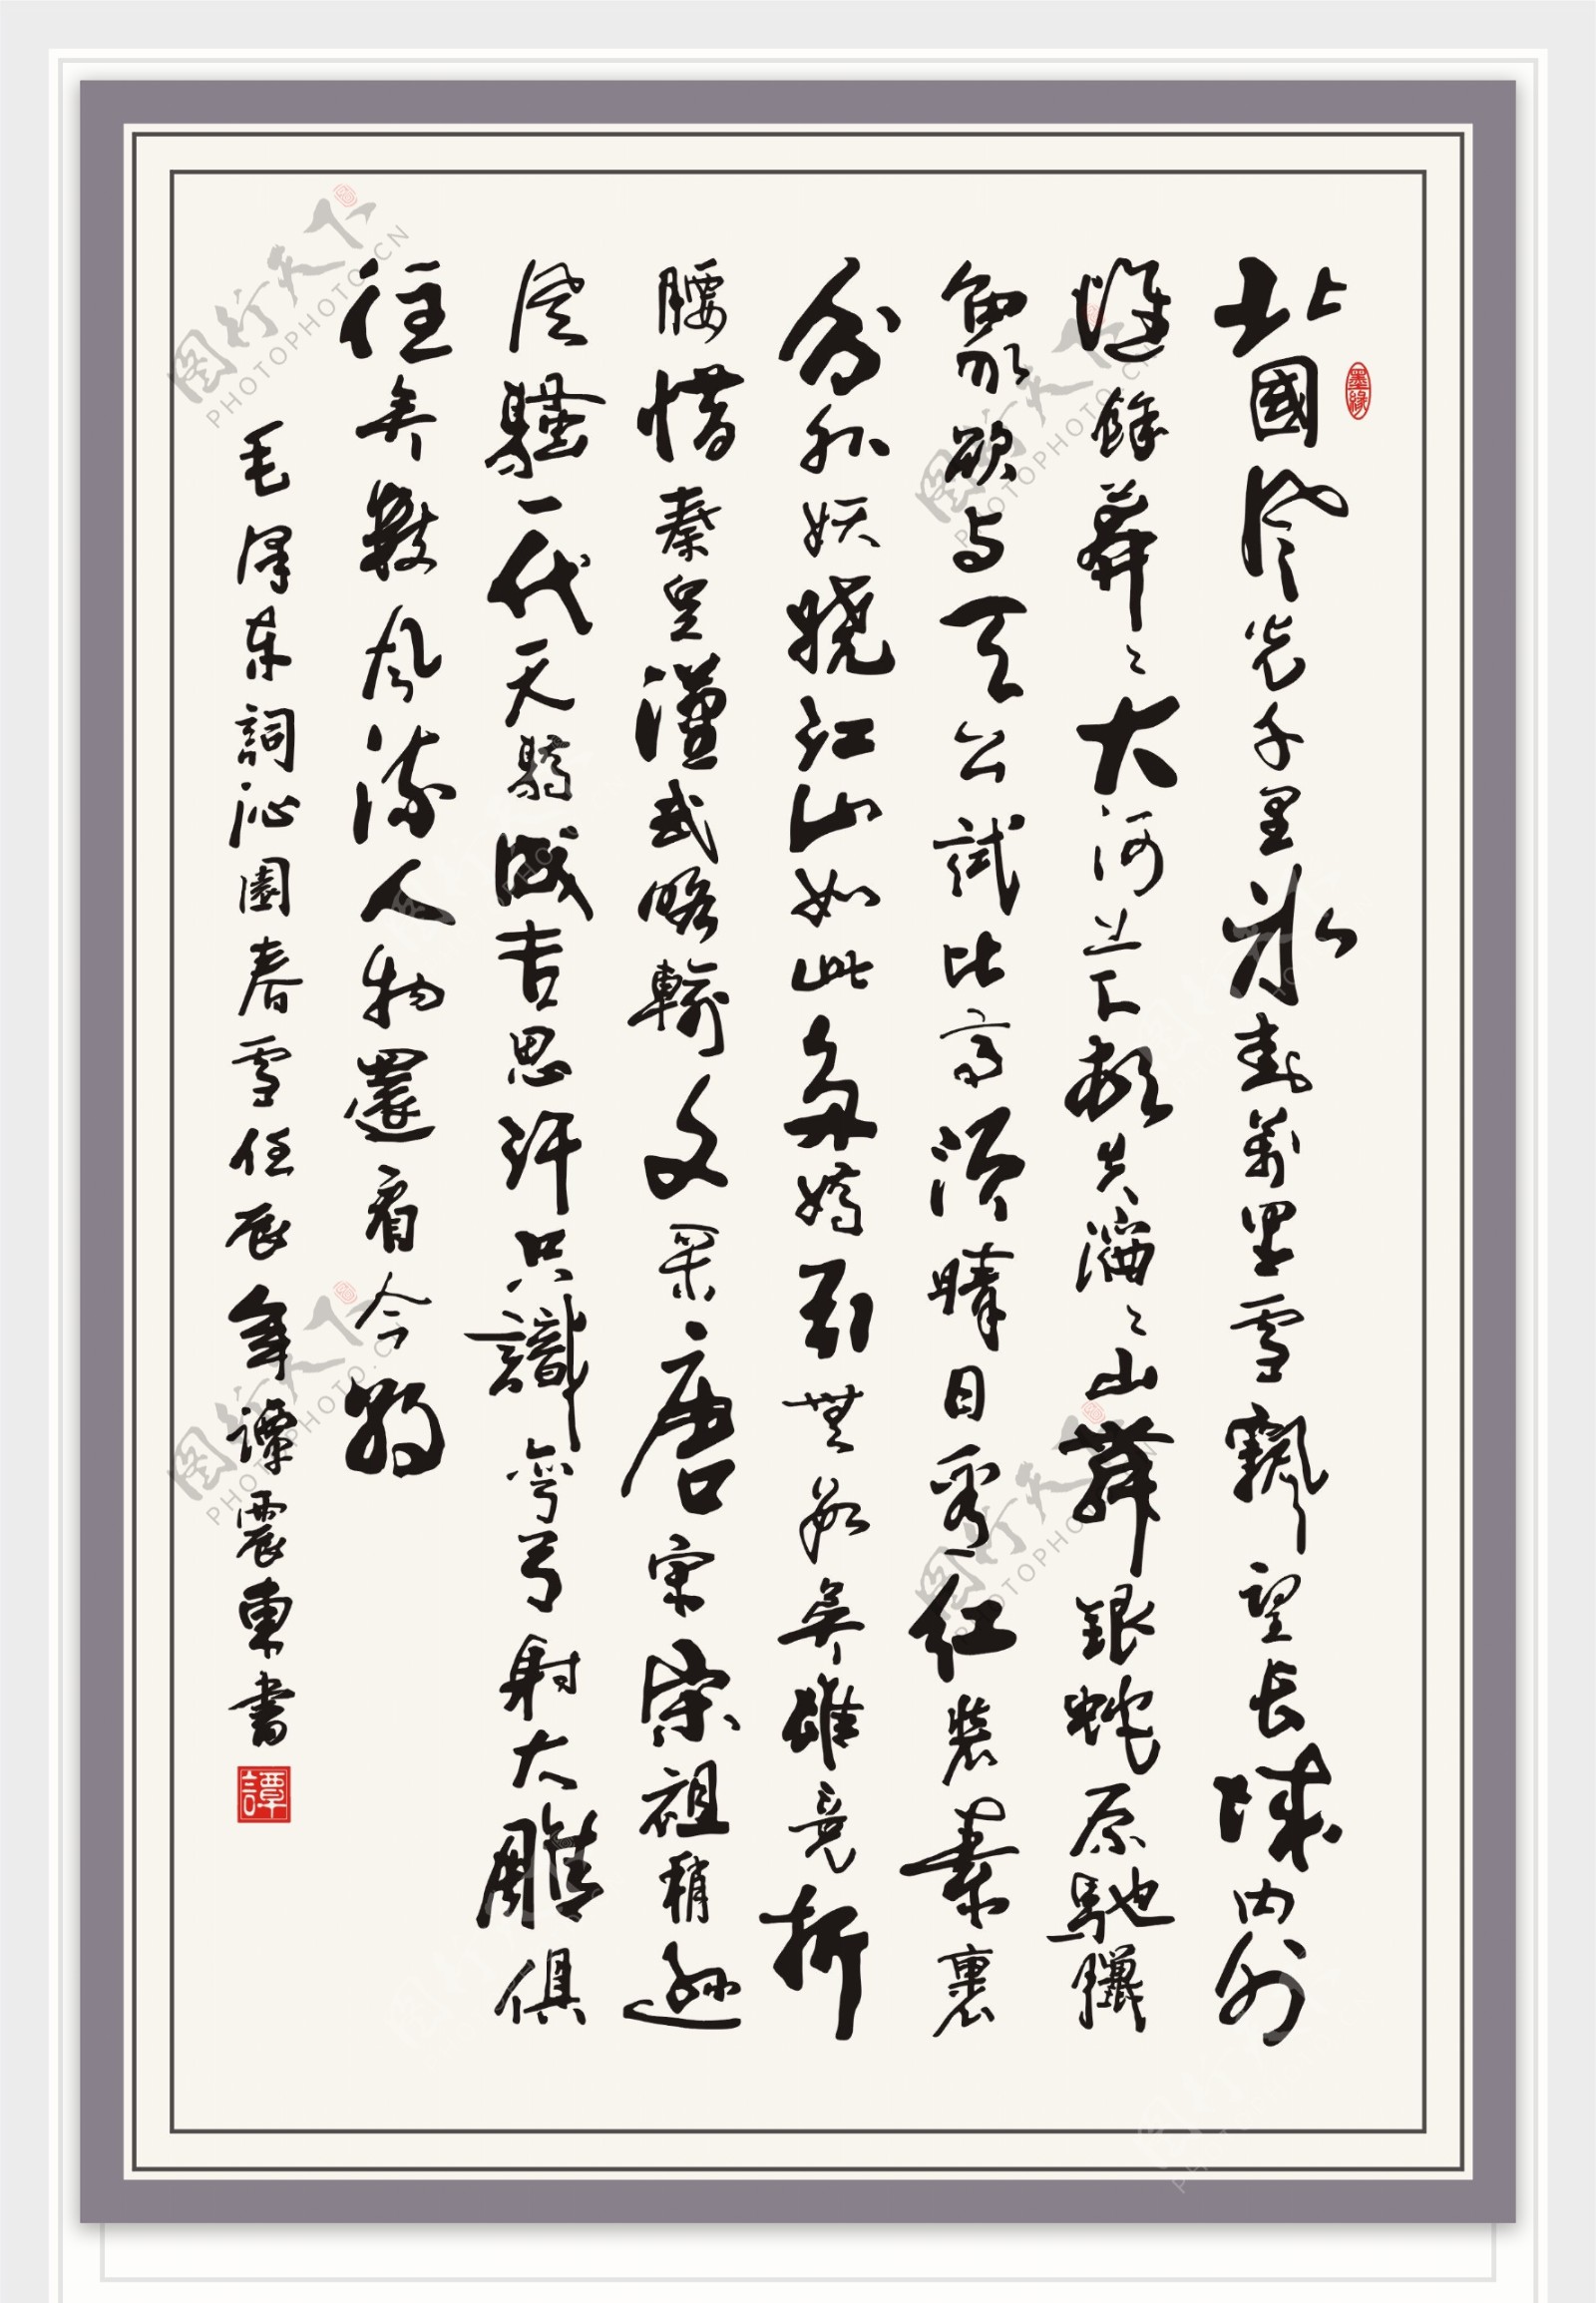 墨緣
北國風光千里冰封萬里雪飄望長城內外
惟餘莽々大河上下頓失滔々山舞銀蛇原馳臘
象欲与天公試比高須晴日看紅裝素裹
分外妖嬈江山如此多嬌引無數英雄竟折
腰惜秦皇漢武略輸文采唐宗宋祖稍遜
風騷一代天驕成吉思汗只識彎弓射大雕俱
往矣數風流人物還看今朝
毛澤東詞沁園春雪任辰年譚震東書
譚
图行天下
PHOTOPHOTO.CN